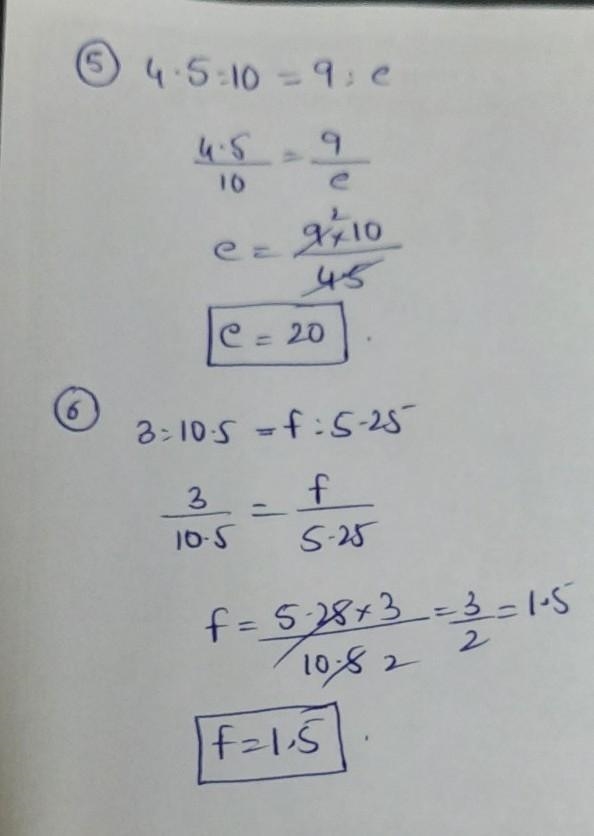 ⑤ 4.5:10 = 9:e
4.5/10 = 9/e
e = 9²×10/45
e = 20.
⑥ 3:10.5 = f:5.25
3/10.5 = f/5.25
f = 5.25×3/10.5 2 = 3/2 = 1.5
f=1.5.